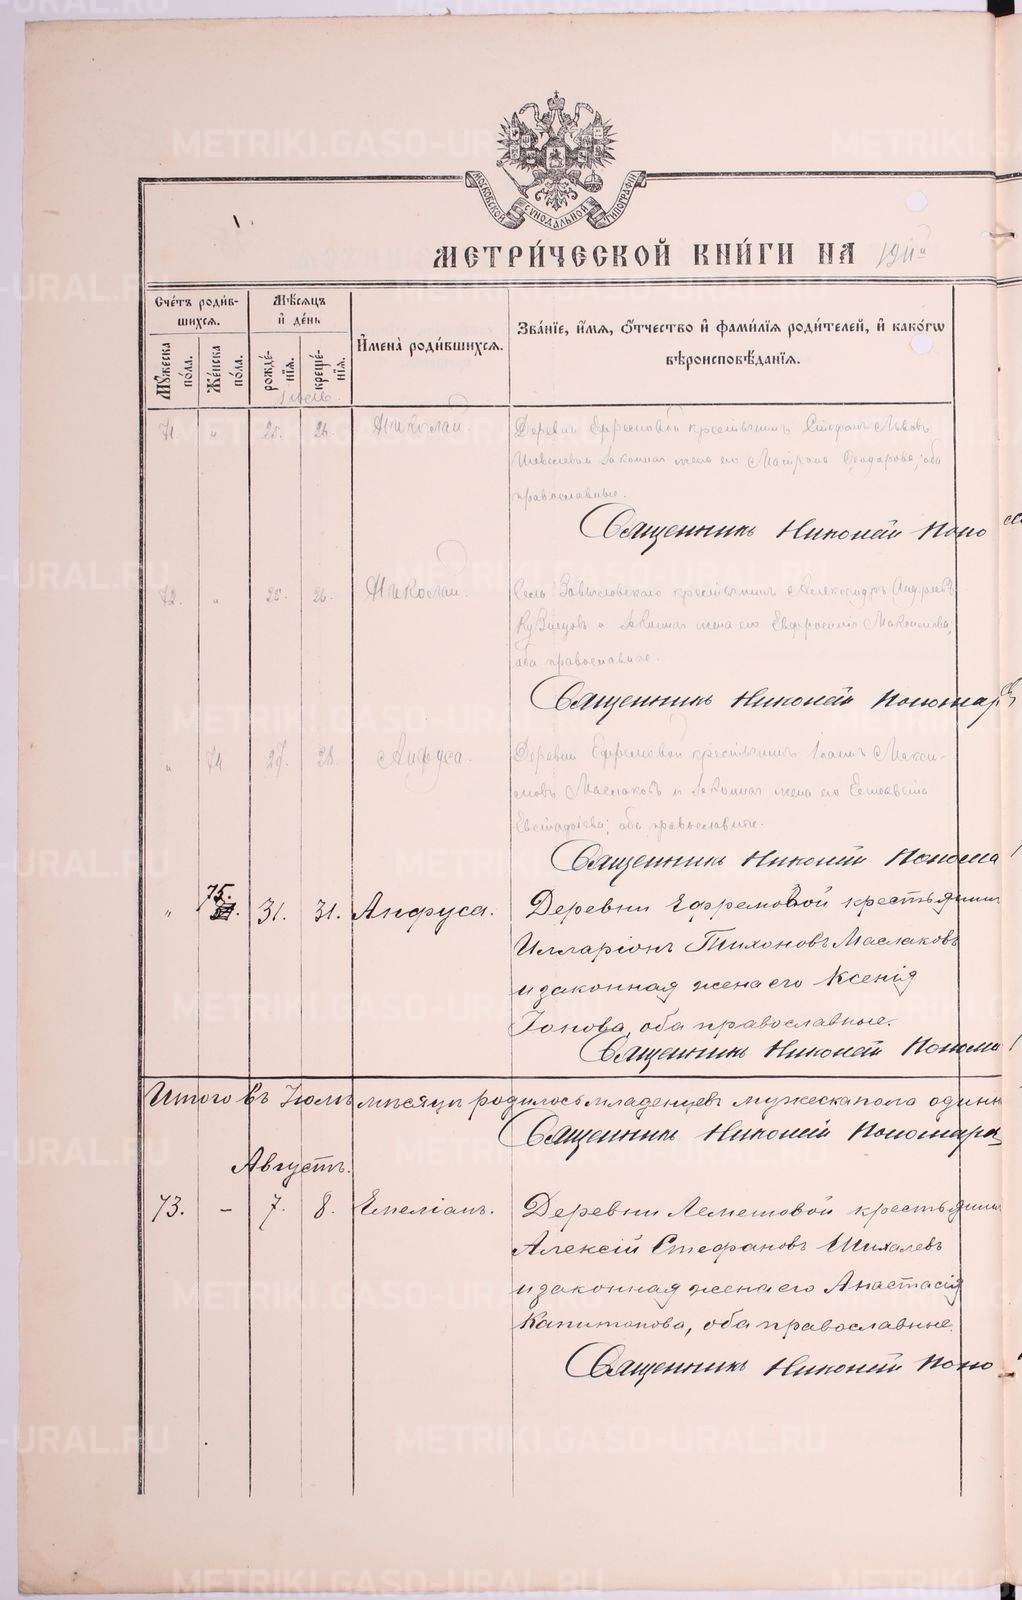 МОСКОВСКОЙ СѴНОДАЛЬНОЙ ТИПОГРАФІИ
МЕТРИ́ЧЕСКОЙ КНИ́ГИ НА 1911
Сче́тъ роди́в-
шихсѧ.
Мꙋ́жеска по́ла.
Же́нска по́ла.
Мѣ́сѧцъ
и҆ де́нь
рожде́-нїѧ.
креще́-нїѧ.
И҆мена̀ роди́вшихсѧ.
Зва́нїе, и҆́мѧ, ѻ҆́тчество и҆ фами́лїѧ роди́телей, и҆ како́гѡ
вѣроисповѣ́данїѧ.
Іюль.
71. " 25. 26. Николай. Деревни Ефремовой крестьянинъ Стефанъ Львовъ
законная жена его Матрона Феодорова, оба
православные.
Священникъ Николай Поно
72. " 25. 26. Николай. Села крестьянинъ Александръ Андреевъ
Кузнецовъ и законная жена его Евфросинія
оба православные.
Священникъ Николай Пономар
" 74 27. 28. Анфуса. Деревни Ефремовой крестьянинъ Іоаннъ Макси-
мовъ Маслаковъ и законная жена его Елисавета
Евстафіева, оба православные.
Священникъ Николай Понома
" 75. 31. 31. Анфуса. Деревни Ефремовой крестьянинъ
Илларіонъ Тихоновъ Маслаковъ
и законная жена его Ксенія
Іонова, оба православные.
Священникъ Николай Понома
Итого въ Іюлѣ мѣсяцѣ родилось младенцевъ мужеска пола один
Священникъ Николай Пономаре
Августъ.
73. – 7. 8. Емеліанъ. Деревни Лемешовой крестьянинъ
Алексій Стефановъ Шихалевъ
и законная жена его Анастасія
Капитонова, оба православные.
Священникъ Николай Поно
METRIKI.GASO-URAL.RU